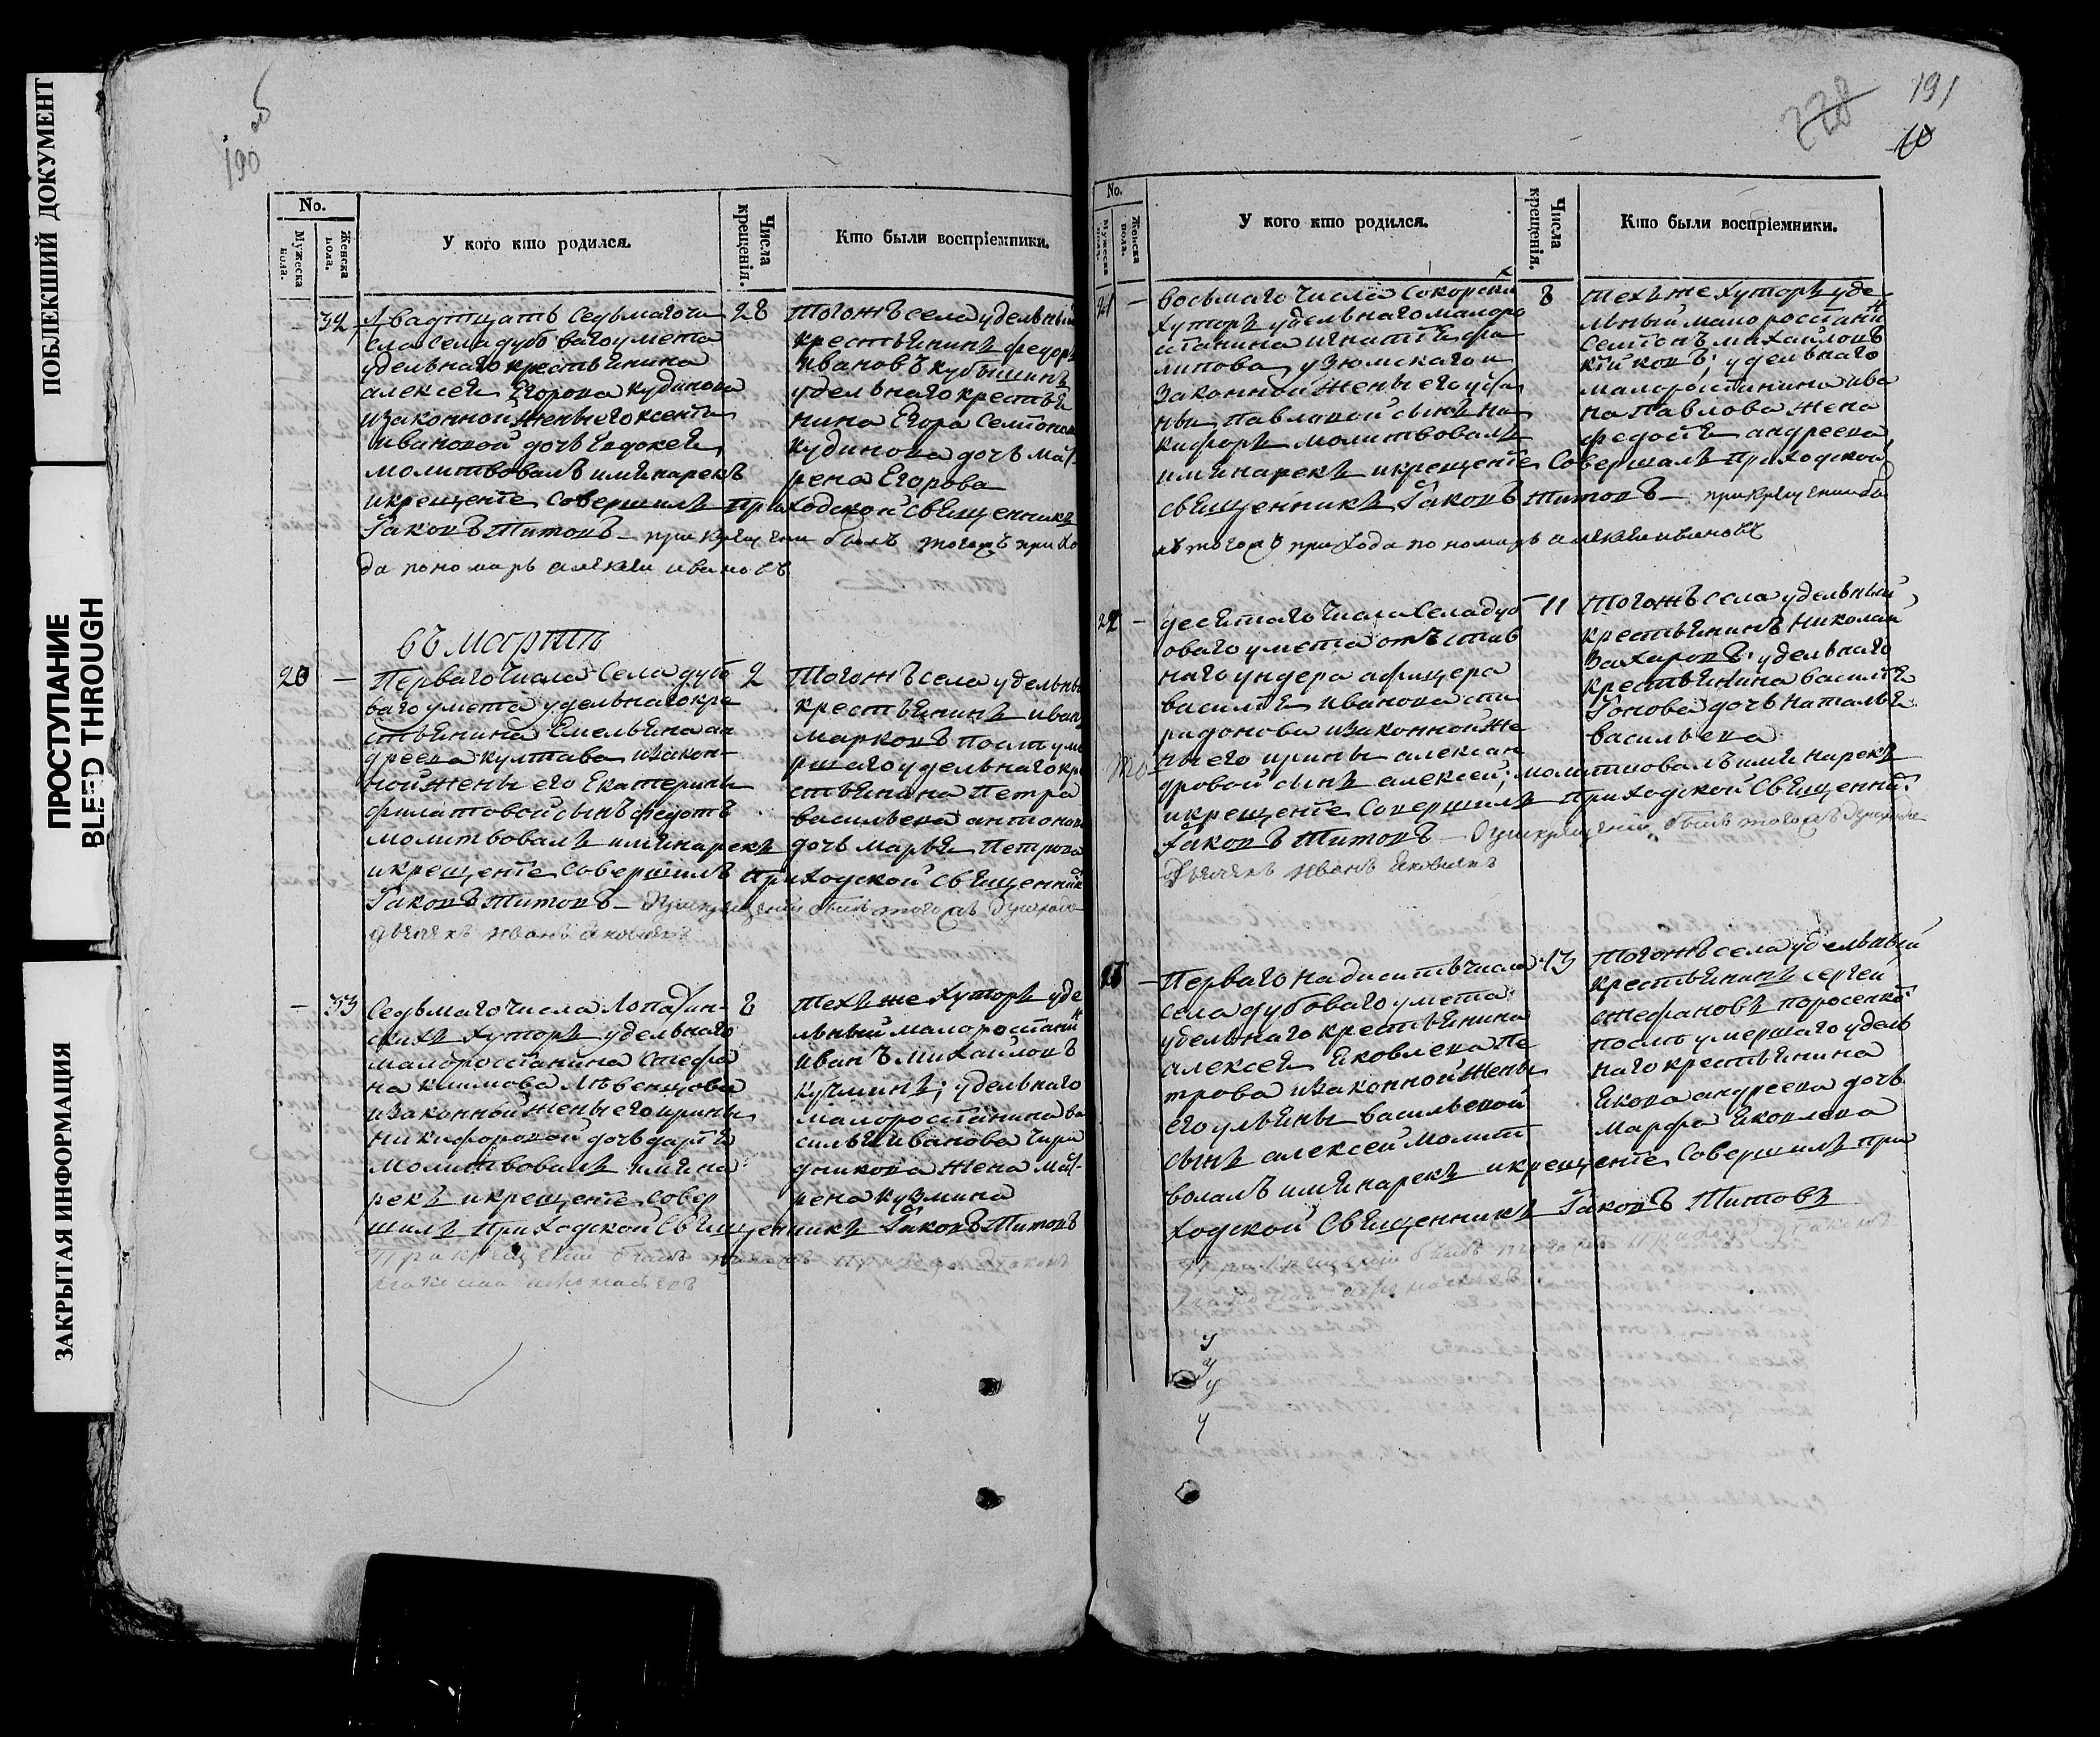 ПОБЛЕКШИЙ ДОКУМЕНТ
ПРОСТУПАНИЕ
BLEED THROUGH
ЗАКРЫТАЯ ИНФОРМАЦИЯ
190 об
No.
Мужеска пола.
Женска пола.
У кого кто родился.
Числа крещенія.
Кто были воспріемники.
32
двадтцать Седьмаго чи
сла села дубоваго умета
удельнаго крестьянина
алексея Егорова кудинова
изаконной жены его ксенiи
ивановой дочь Евдокея,
молитвовалъ имя нарекъ
икрещенiе Совершилъ приходской свещенникъ
Iаковъ Титовъ – при крещении былъ тогожъ прихо
да пономарь алексеи ивановъ
28
Тогожъ села удельный
крестьянинъ федоръ
Ивановъ кубышинъ
удельнаго крестья
нина Егора Семионова
кудинова дочь мат
рена Егорова
въ мартъ
20 –
Перваго Числа Села дубо
ваго умета удельнаго кре
стьянина Емельяна ан
дреева култава изакон-
ной жены его Екатерины
филатовой сынъ федотъ
молитвовалъ имя нарекъ
икрещение Совершилъ Приходской Свещенникъ
Iаковъ Титовъ –
дьячекъ Иванъ Яковлевъ
2
Тогожъ села удельный
крестьянинъ иванъ
марковъ посли уме
ршаго удельнаго кре
стьянина Петра
васильева антонова
дочь марья Петрова
– 33
Седьмаго числа Лопахин-
скихъ Хуторъ удельнаго
малоросiянина Стефа
на климова
изаконной жены его ирины
никифоровой дочь дарiя
молитвовалъ имя на
рекъ икрещенiе совер
шилъ приходской Свещенникъ Iаковъ Титовъ
При крещении былъ тогожъ прихода
8
Техъ же Хуторъ уде
льный малоросiанин
иванъ михайловъ
кузминъ; удельнаго
малоросiянина ва
силья иванова
жена мат-
рена кузмина
191
228
No.
Мужеска пола.
Женска пола.
У кого кто родился.
Числа крещенія.
Кто были воспріемники.
21 –
восьмаго числа Сокорски
Хуторъ удельнаго малоро
сiянина игнатiя фи
липова узюмскаго и
законной жены его
ны павловой сынъ ни
кифоръ молитвовалъ
имя нарекъ икрещенiе Совершалъ Приходской
свещенникъ Iаковъ Титовъ – прикрещении бы
лъ тогожъ прихода пономарь алексеи ивановъ
8
техъ же Хуторъ уде
льный малоросiанин
Семионъ михайловъ
удельнаго
малоросiянина ива
на павлова жена
федосiя андреева
22 –
десятаго числа Села дуб
оваго умета отъстав
наго ундера афицера
василiя иванова сти
ридонова изаконной же
ны его ирины алексан
дровой сынъ алексей; молитвовалъ имя нарекъ
икрещенiе Совершилъ Приходской Свещенни:
Iаковъ Титовъ –
Дьячекъ Иванъ Яковлевъ
11
тогожъ села удельный
крестьянинъ Николай
Захаровъ; удельнаго
крестьянина василiя
дочь наталья
васильева
Перваго надиситъ числа
села дубоваго умета
удельнаго крестьянина
алексея Яковлева Пе
трова изаконной жены
его ульяны васильевой
сынъ алексей молит
вовалъ имя нарекъ икрещенiе Совершилъ при
ходской Свещенникъ Iаковъ Титовъ
При Крещении былъ тогожъ прихода
13
Тогожъ села удельный
крестьянинъ сергей
стефановъ поросенко:
посли умершаго удель
наго крестьянина
Якова андреева дочь
марфа Яковлева